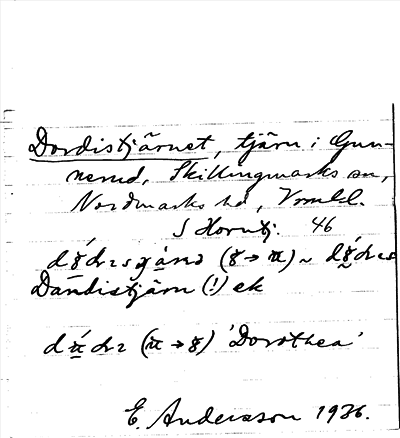 Dordistjärnet, tjärn i Gun-
nerud, Skillingmarks sn,
Nordmarks hd, Vrmld.
S Horntj. 46
Dandistjärn (!) ek
'Dorothea'
E. Andersson 1926.